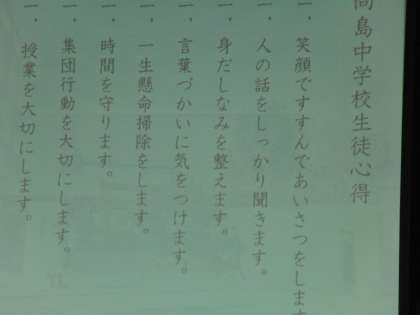 高島中学校生徒心得
一、笑顔ですすんであいさつをします
一、人の話をしっかり聞きます。
一、身だしなみを整えます。
一、言葉づかいに気をつけます。
一、一生懸命掃除をします。
一、時間を守ります。
一、集団行動を大切にします。
一、授業を大切にします。